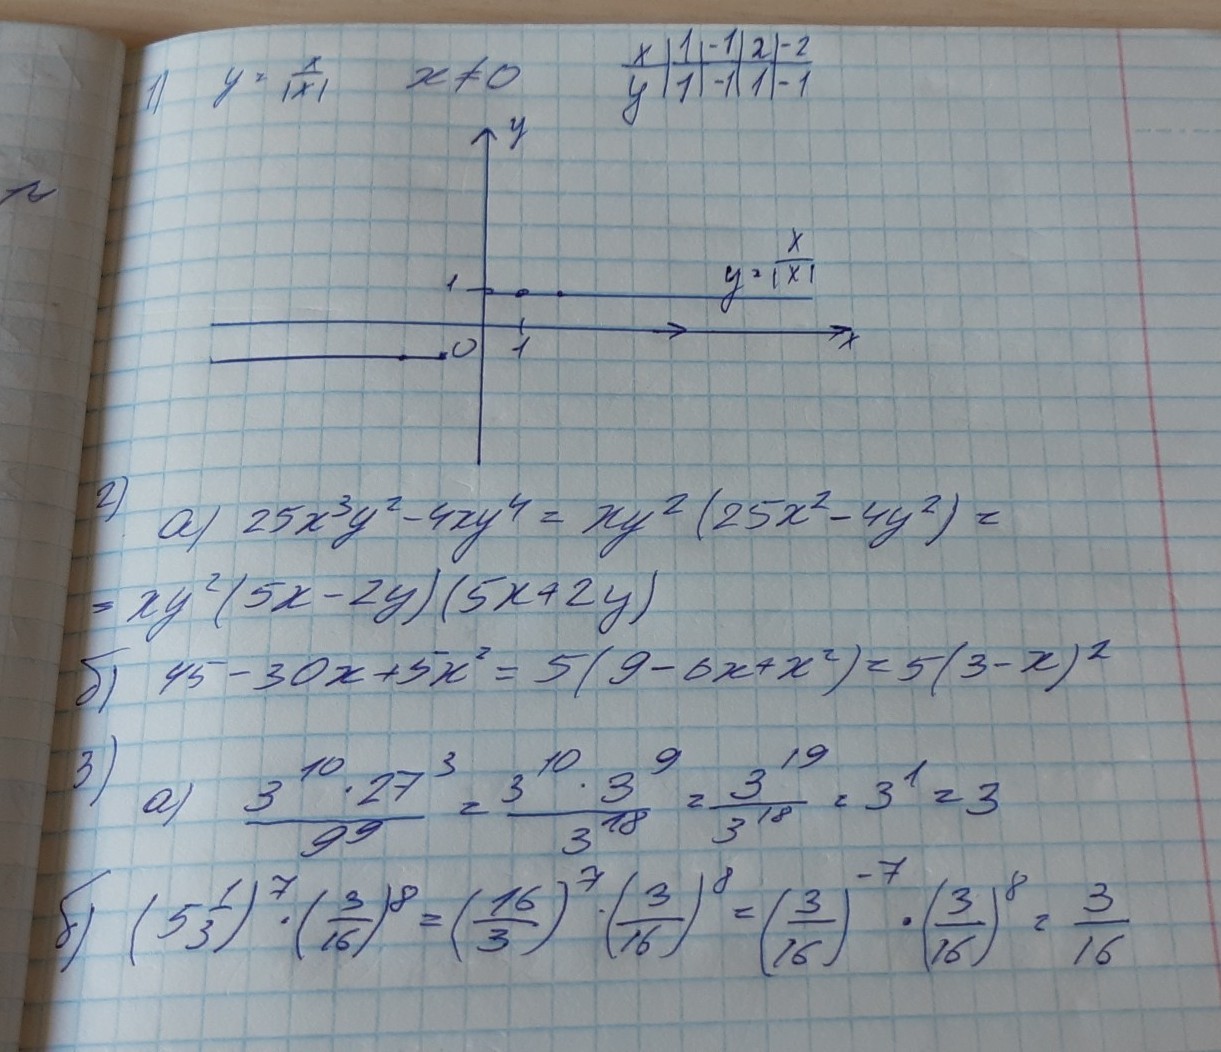 1) y = x/|x| x ≠ 0
x | 1 | -1 | 2 | -2
y | 1 | -1 | 1 | -1
y
y = x/|x|
1
0 1 x
2) а) 25x³y² - 4xy⁴ = xy²(25x² - 4y²) =
= xy²(5x - 2y)(5x + 2y)
б) 45 - 30x + 5x² = 5(9 - 6x + x²) = 5(3 - x)²
3) а) (3¹⁰ · 27³)/9⁹ = (3¹⁰ · 3⁹)/3¹⁸ = 3¹⁹/3¹⁸ = 3¹ = 3
б) (5 1/3)⁷ · (3/16)⁸ = (16/3)⁷ · (3/16)⁸ = (3/16)⁻⁷ · (3/16)⁸ = 3/16